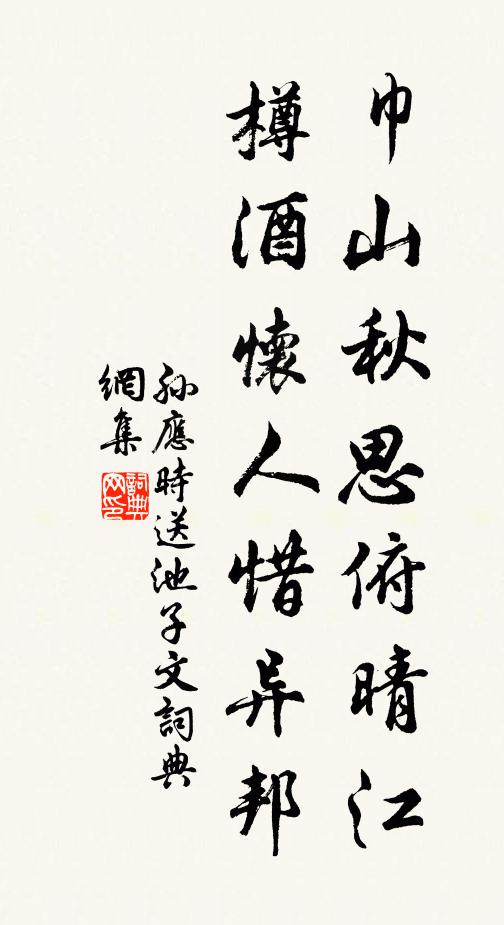 巾山秋思俯晴江
樽酒懷人惜异邦
孫應時送池子文詞典
網集
詞典
网印